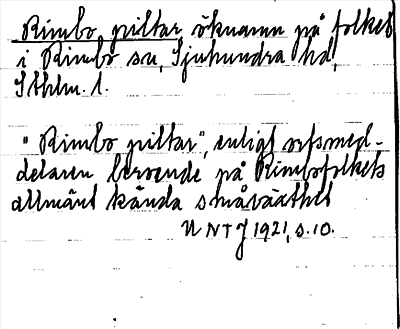 Rimbo piltar öknamn på folket
i Rimbo sn, Sjuhundra hd,
Sthlm. l.
"Rimbo piltar", enligt ortsmed-
delaren beroende på Rimbofolkets
allmänt kända småväxthet
UNTJ 1921, s. 10.